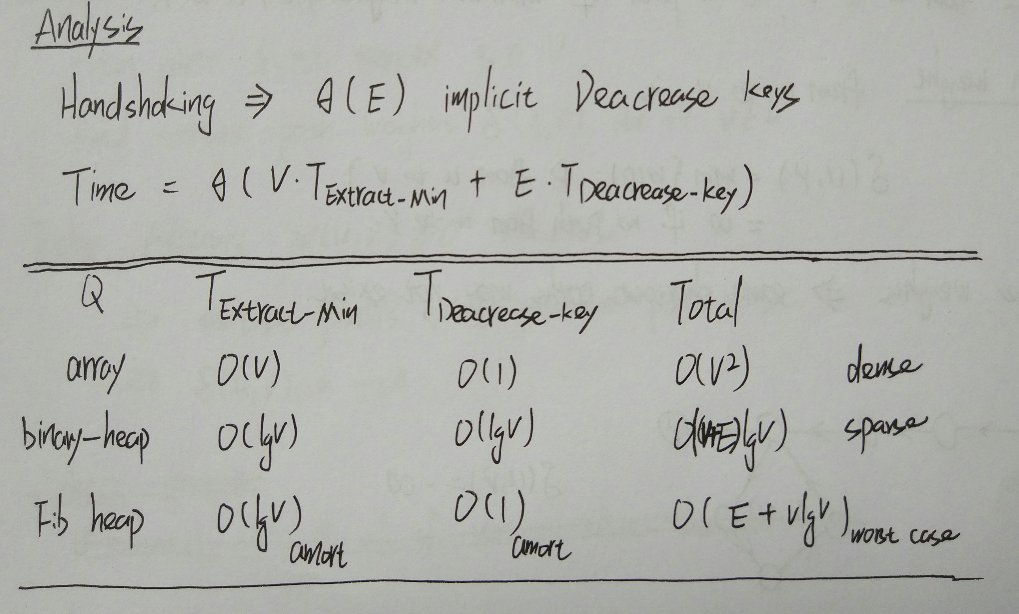 Analysis
Handshaking ⇒ θ(E) implicit Deacrease keys
Time = θ(V·T Extract-Min + E·T Deacrease-key)
Q T Extract-Min T Deacrease-key Total
array O(V) O(1) O(V²) dense
binary-heap O(lgV) O(lgV) O((V+E)lgV) sparse
Fib heap O(lgV) amort O(1) amort O(E+VlgV) worst case